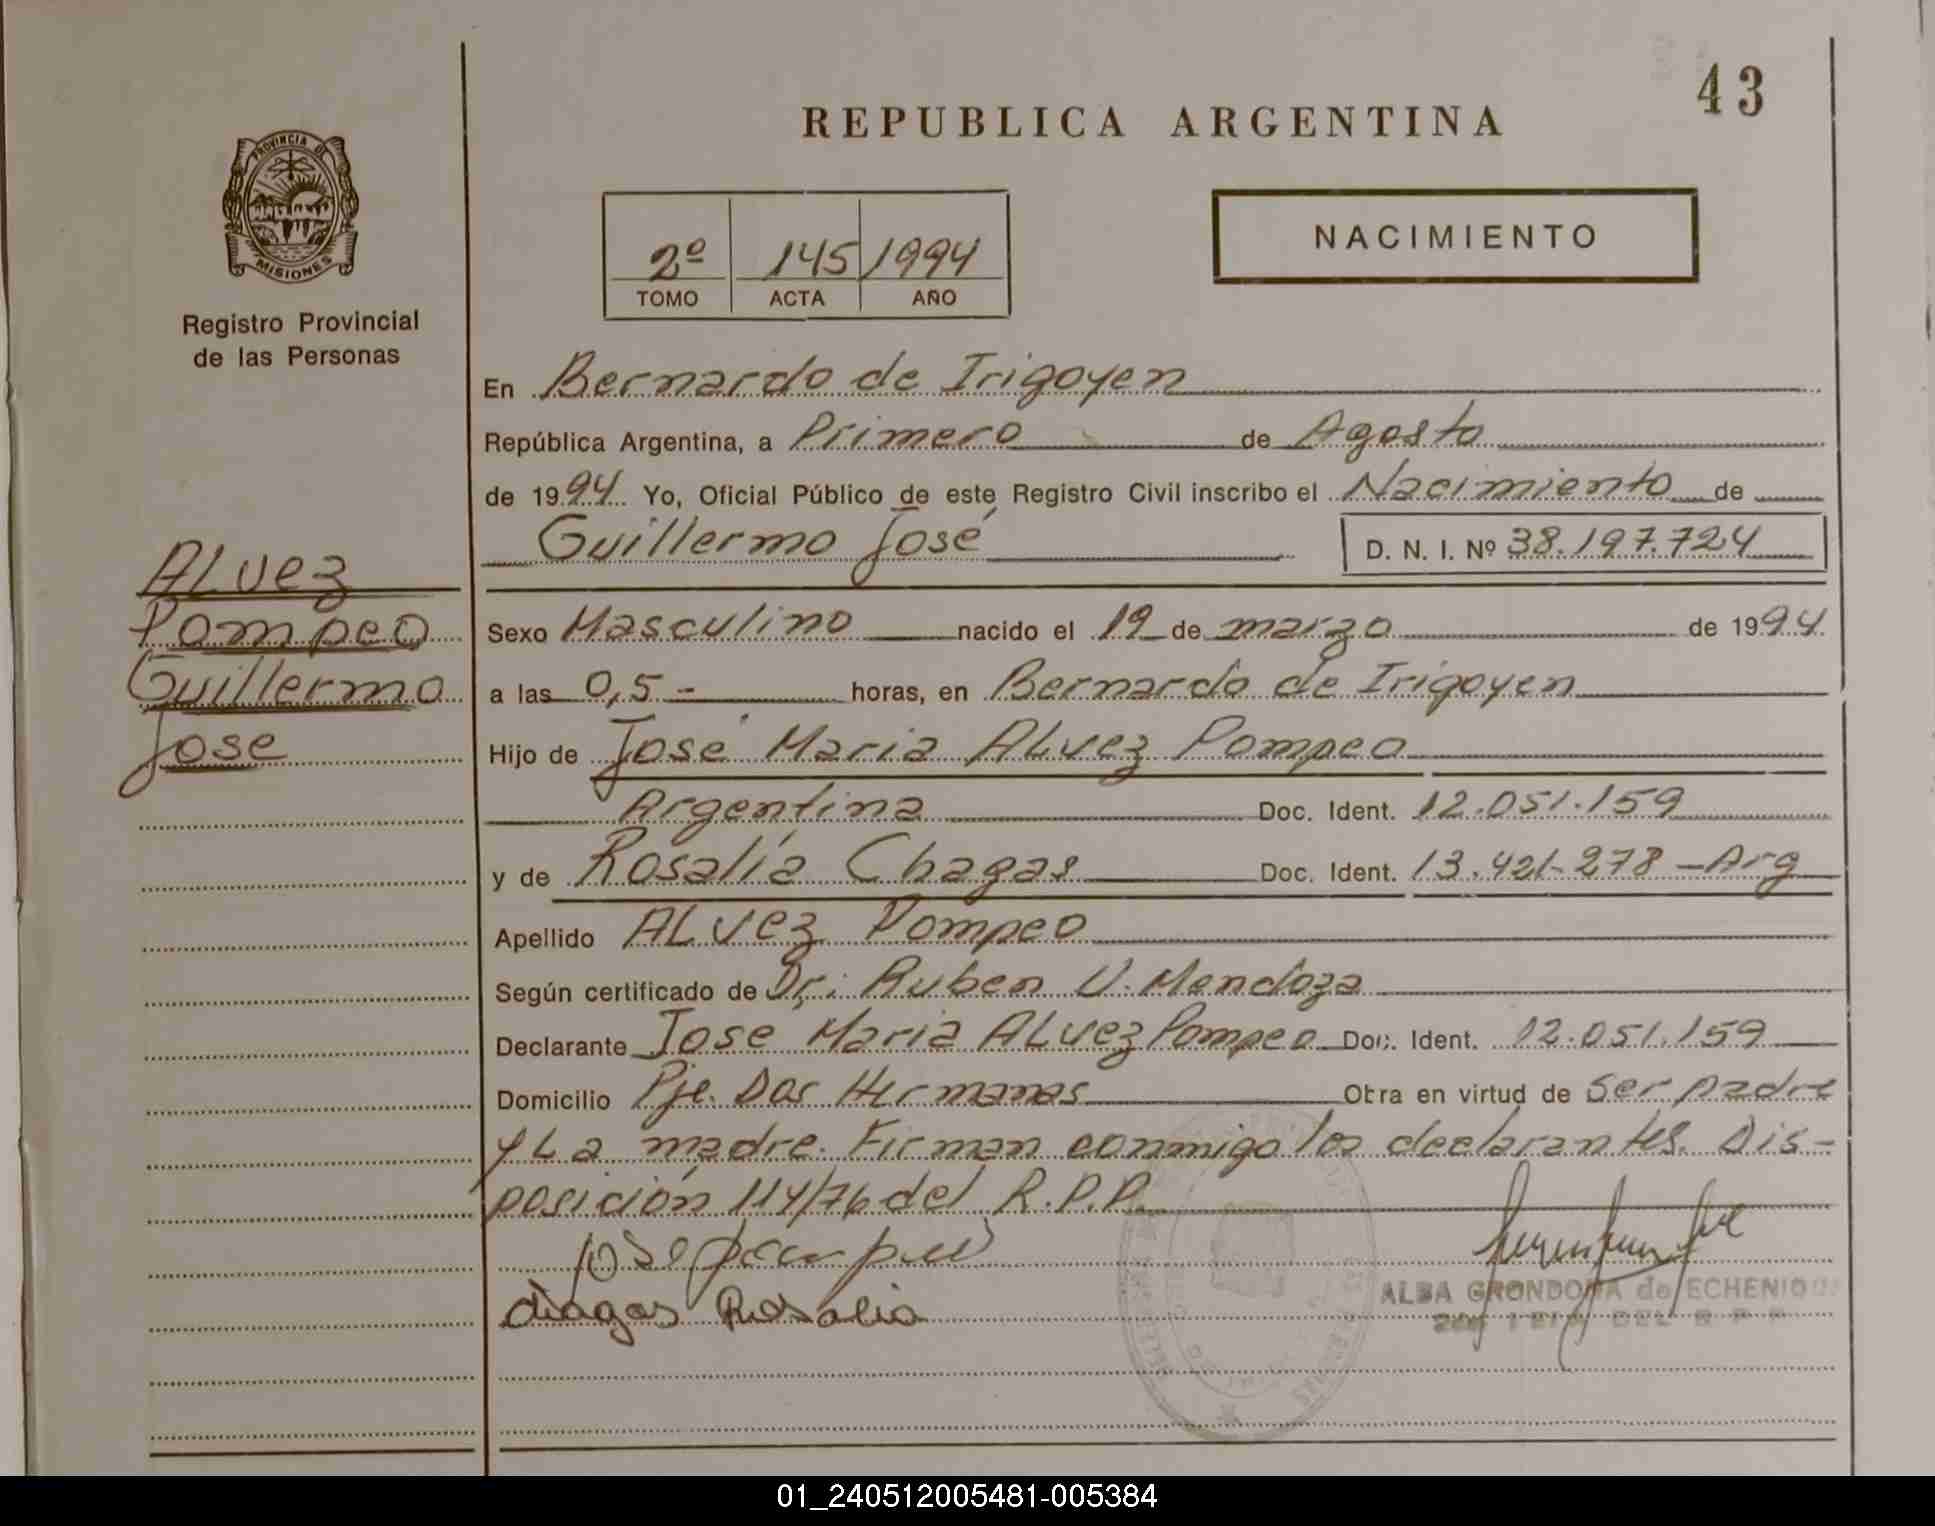 43
REPUBLICA ARGENTINA
PROVINCIA DE
MISIONES
Registro Provincial
de las Personas
2º 145 1994
TOMO ACTA AÑO
NACIMIENTO
En Bernardo de Irigoyen
República Argentina, a Primero de Agosto
de 1994 Yo, Oficial Público de este Registro Civil inscribo el Nacimiento de
Guillermo José D. N. I. Nº 38.197.724
ALvez
Pompeo
Guillermo
José
Sexo Masculino nacido el 19 de marzo de 1994
a las 0,5 - horas, en Bernardo de Irigoyen
Hijo de José Maria ALvez Pompeo
Argentina Doc. Ident. 12.051.159
y de Rosalía Chagas Doc. Ident. 13.421.278 - Arg
Apellido ALvez Pompeo
Según certificado de Dr: Ruben V. Mendoza
Declarante Jose Maria ALvez Pompeo Doc. Ident. 12.051.159
Domicilio Pje. Dos Hermanas Obra en virtud de Ser padre
y La madre. Firman conmigo los declarantes. Dis-
posición 114/76 del R.P.P.
jose pompeo
chagas Rosalia
ALBA GRONDONA de ECHENIQUE
DEL R P P
01_240512005481-005384